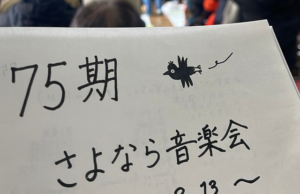 75期
さよなら音楽会
3.13〜